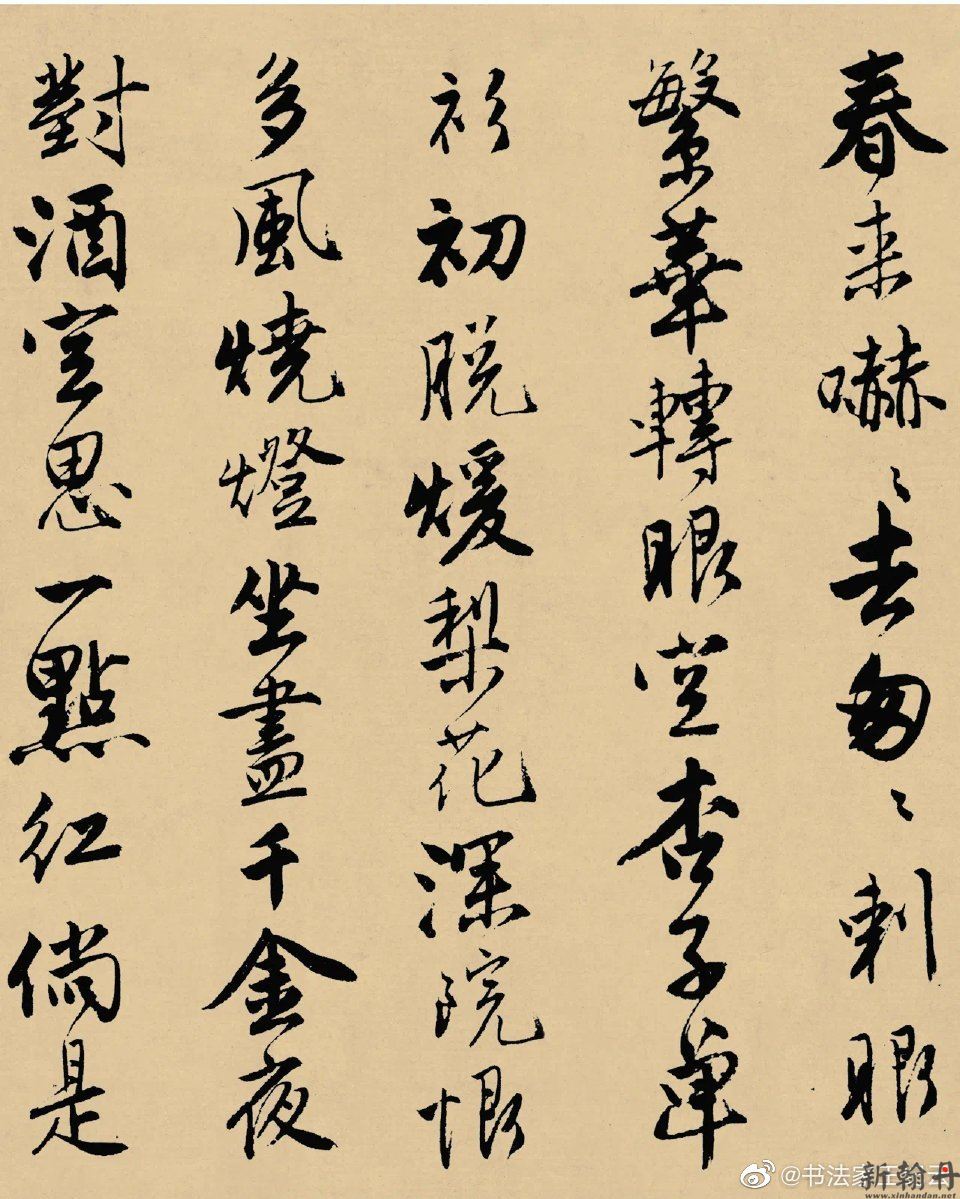 春来嚇〻去匆〻刺眼
繁華轉眼空杏子單
衫初脱煖梨花深院恨
多風燒燈坐盡千金夜
對酒空思一點紅倘是
@书法家
新翰丹
www.xinhandan.net